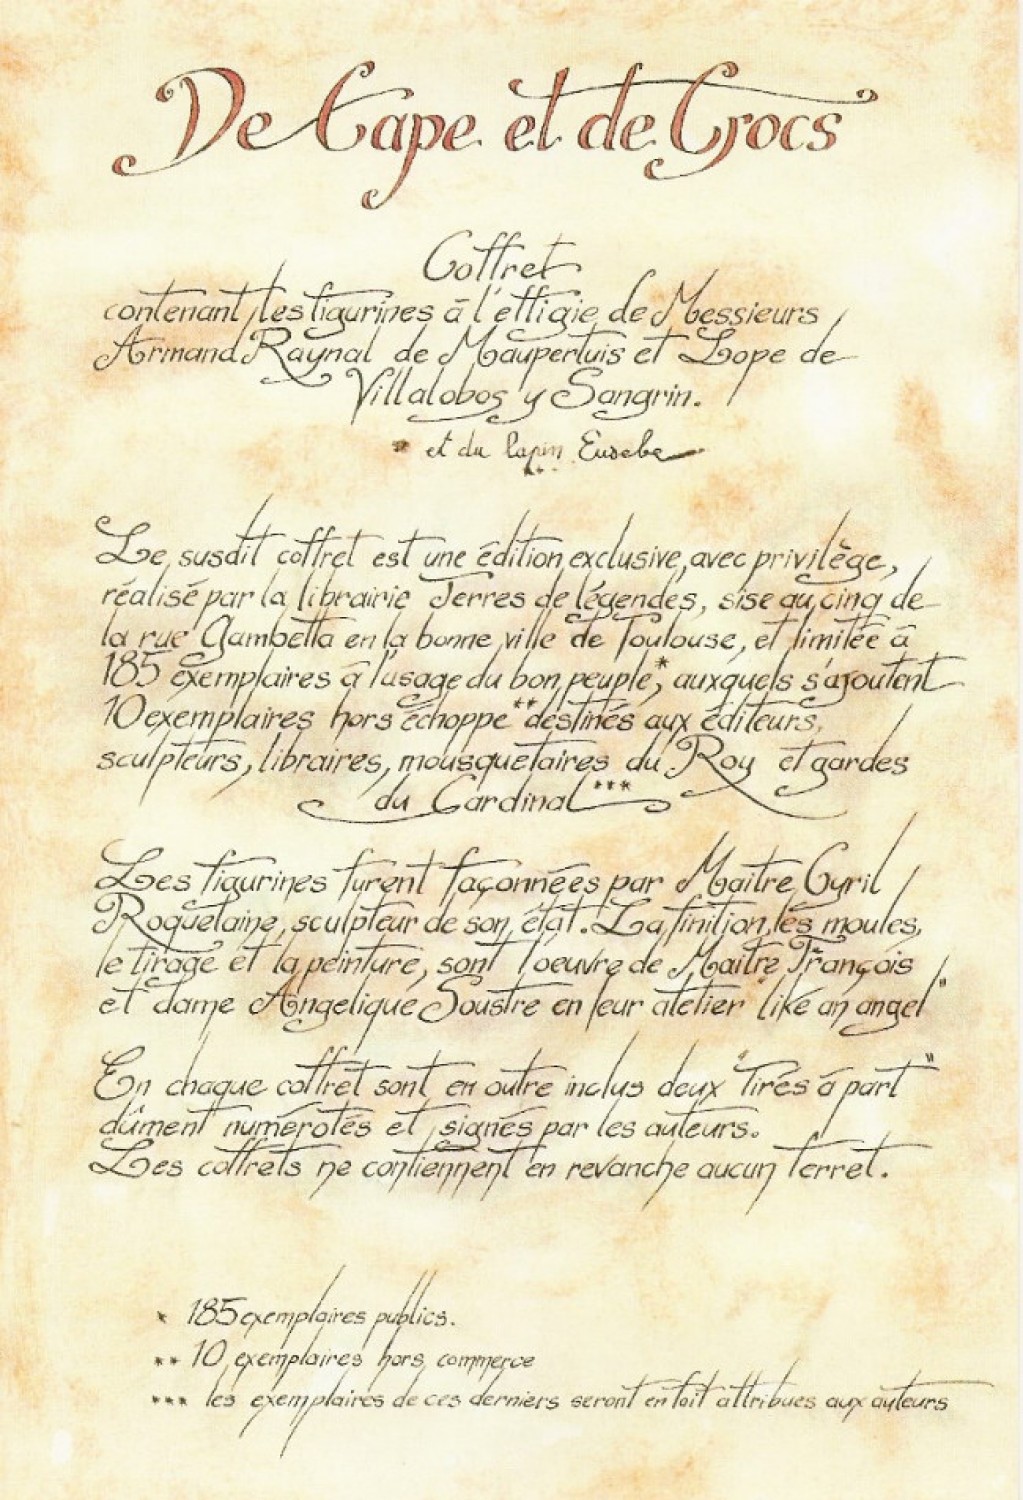 De Cape et de Crocs
Coffret
contenant les figurines à l'effigie de Messieurs
Armand Raynal de Maupertuis et Lope de
Villalobos y Sangrin.
* et du lapin Eusebe
Le susdit coffret est une édition exclusive, avec privilège,
réalisé par la librairie Terres de légendes, sise au cinq de
la rue Gambetta en la bonne ville de Toulouse, et limitée à
185 exemplaires à l'usage du bon peuple*, auxquels s'ajoutent
10 exemplaires hors échoppe** destinés aux éditeurs,
sculpteurs, libraires, mousquetaires du Roy et gardes
du Cardinal***
Les figurines furent façonnées par Maitre Cyril
Roquelaine, sculpteur de son état. La finition, les moules,
le tirage et la peinture, sont l'oeuvre de Maitre François
et dame Angelique Soustre en leur atelier "like an angel"
En chaque coffret sont en outre inclus deux "tirés à part"
dûment numérotés et signés par les auteurs.
Les coffrets ne contiennent en revanche aucun ferret.
* 185 exemplaires publics.
** 10 exemplaires hors commerce
*** les exemplaires de ces derniers seront en fait attribues aux auteurs